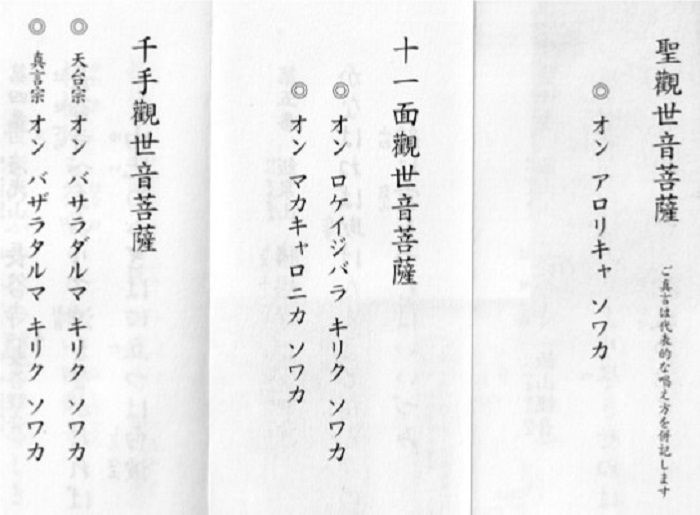 聖觀世音菩薩
ご真言は代表的な唱え方を併記します
◎ オン アロリキャ ソワカ
十一面觀世音菩薩
◎ オン ロケイジバラ キリク ソワカ
◎ オン マカキャロニカ ソワカ
千手觀世音菩薩
◎ 天台宗 オン バサラダルマ キリク ソワカ
◎ 真言宗 オン バザラタルマ キリク ソワカ